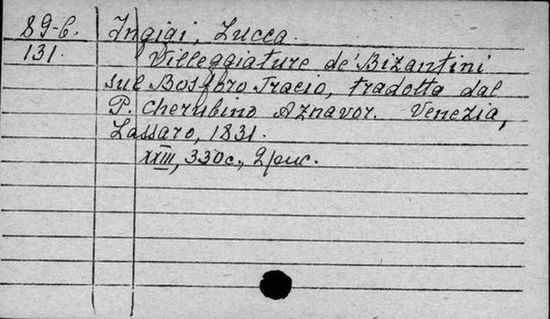 89-б. Ingigi, Lucca.
131. Villeggiature de' Bizantini
sul Bosforo Tracio, tradotta dal
P. Cherubino Aznavor. Venezia,
Lassaro, 1831.
XXIII, 330 c., 2 рис.